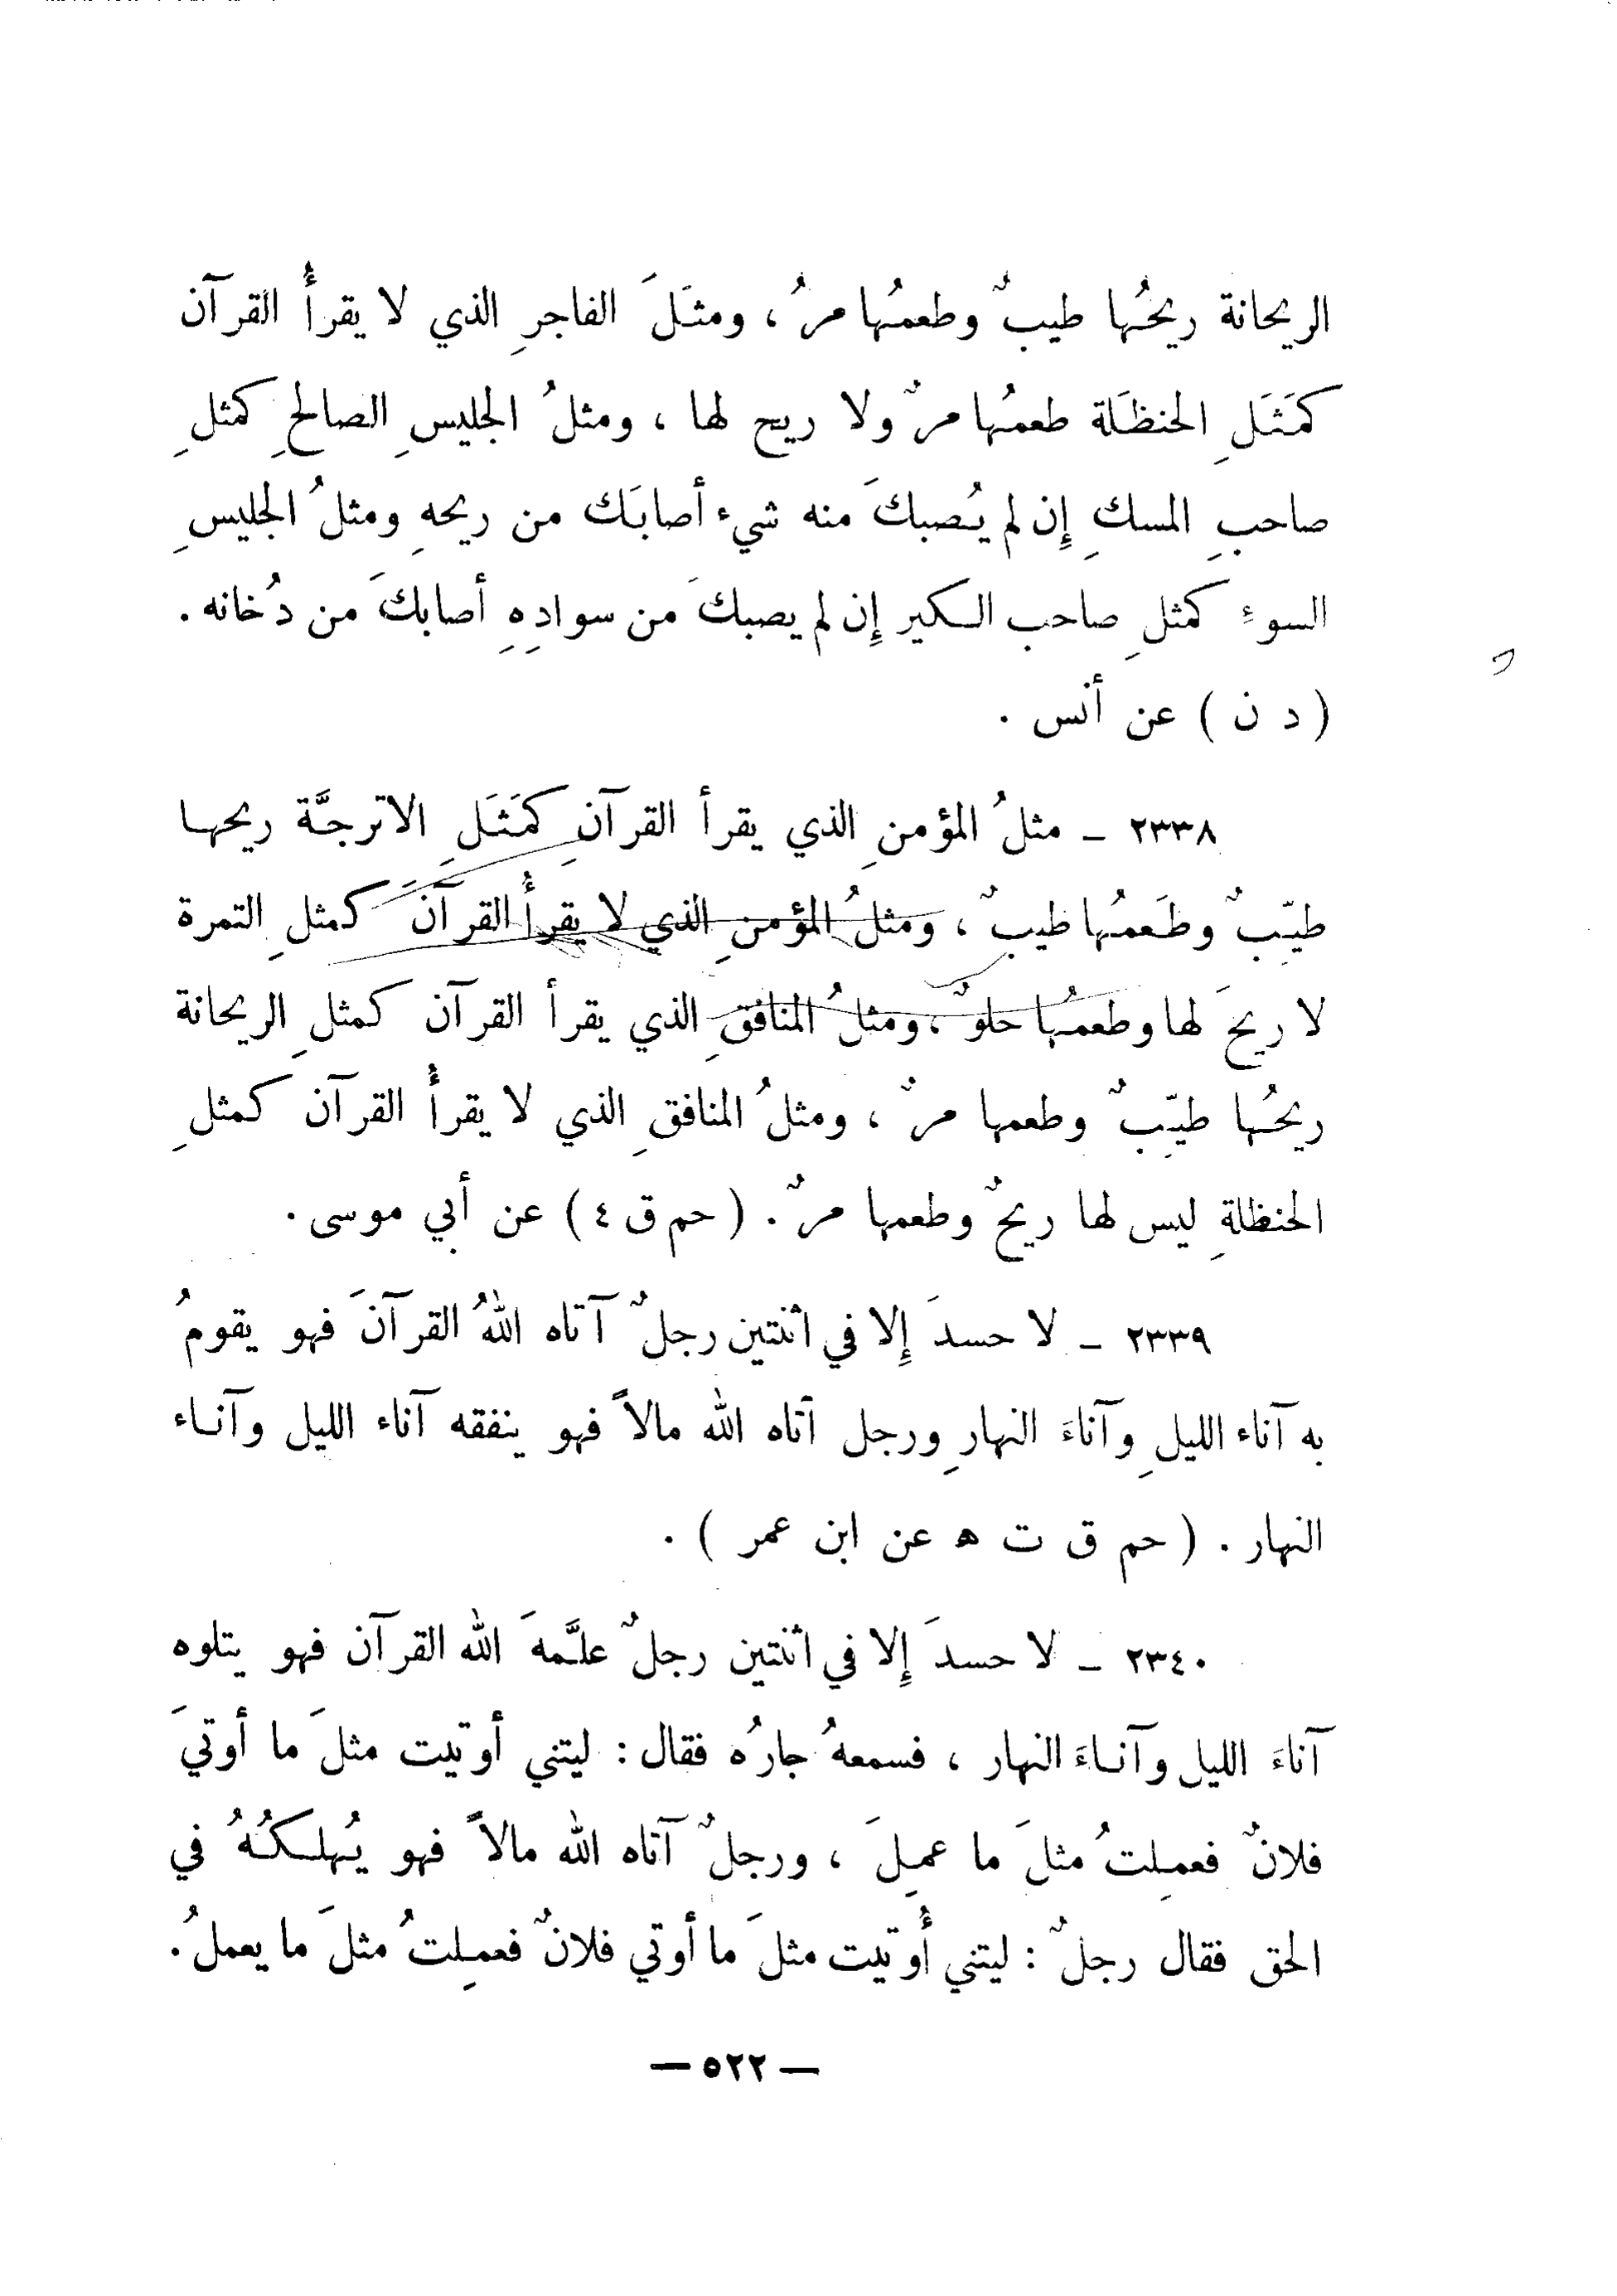 الريحانة ريحُها طيبٌ وطعمُها مرُ ، ومثَلَ الفاجرِ الذي لا يقرأُ القرآن
كمَثَلِ الحنظَلة طعمُها مرٌ ولا ريح لها ، ومثلُ الجليسِ الصالحِ كمثلِ
صاحبِ المسكِ إِن لم يُصبكَ منه شيء أصابَك من ريحهِ ومثلُ الجليسِ
السوءِ كمثلِ صاحب الكير إِن لم يصبكَ من سوادِهِ أصابكَ من دُخانه .
( د ن ) عن أنس .
٢٣٣٨ ـ مثلُ المؤمنِ الذي يقرأ القرآنِ كمَثَلِ الاترجَّة ريحها
طيّبٌ وطَعمُها طيبٌ ، ومثلُ المؤمنِ الذي لا يقرأُ القرآنَ كمثلِ التمرة
لا ريحَ لها وطعمُها حلوٌ ، ومثلُ المنافقِ الذي يقرأ القرآن كمثلِ الريحانة
ريحُها طيّبٌ وطعمها مرٌ ، ومثلُ المنافقِ الذي لا يقرأُ القرآن كمثلِ
الحنظلةِ ليس لها ريحٌ وطعمها مرٌ . ( حم ق ٤ ) عن أبي موسى .
٢٣٣٩ ـ لا حسدَ إِلا في اثنتين رجلٌ آتاه اللهُ القرآنَ فهو يقومُ
به آناء الليلِ وآناءَ النهارِ ورجل آتاه الله مالاً فهو ينفقه آناء الليل وآناء
النهار . ( حم ق ت ه عن ابن عمر ) .
٢٣٤٠ ـ لا حسدَ إِلا في اثنتين رجلٌ علَّمهَ الله القرآن فهو يتلوه
آناءَ الليل وآناءَ النهار ، فسمعهُ جارُه فقال : ليتني أوتيت مثلَ ما أوتيَ
فلانٌ فعمِلتُ مثلَ ما عمِلَ ، ورجلٌ آتاه الله مالاً فهو يُهلكُهُ في
الحق فقال رجلٌ : ليتني أُوتيت مثلَ ما أوتي فلانٌ فعمِلتُ مثلَ ما يعملُ .
— ٥٢٢ —